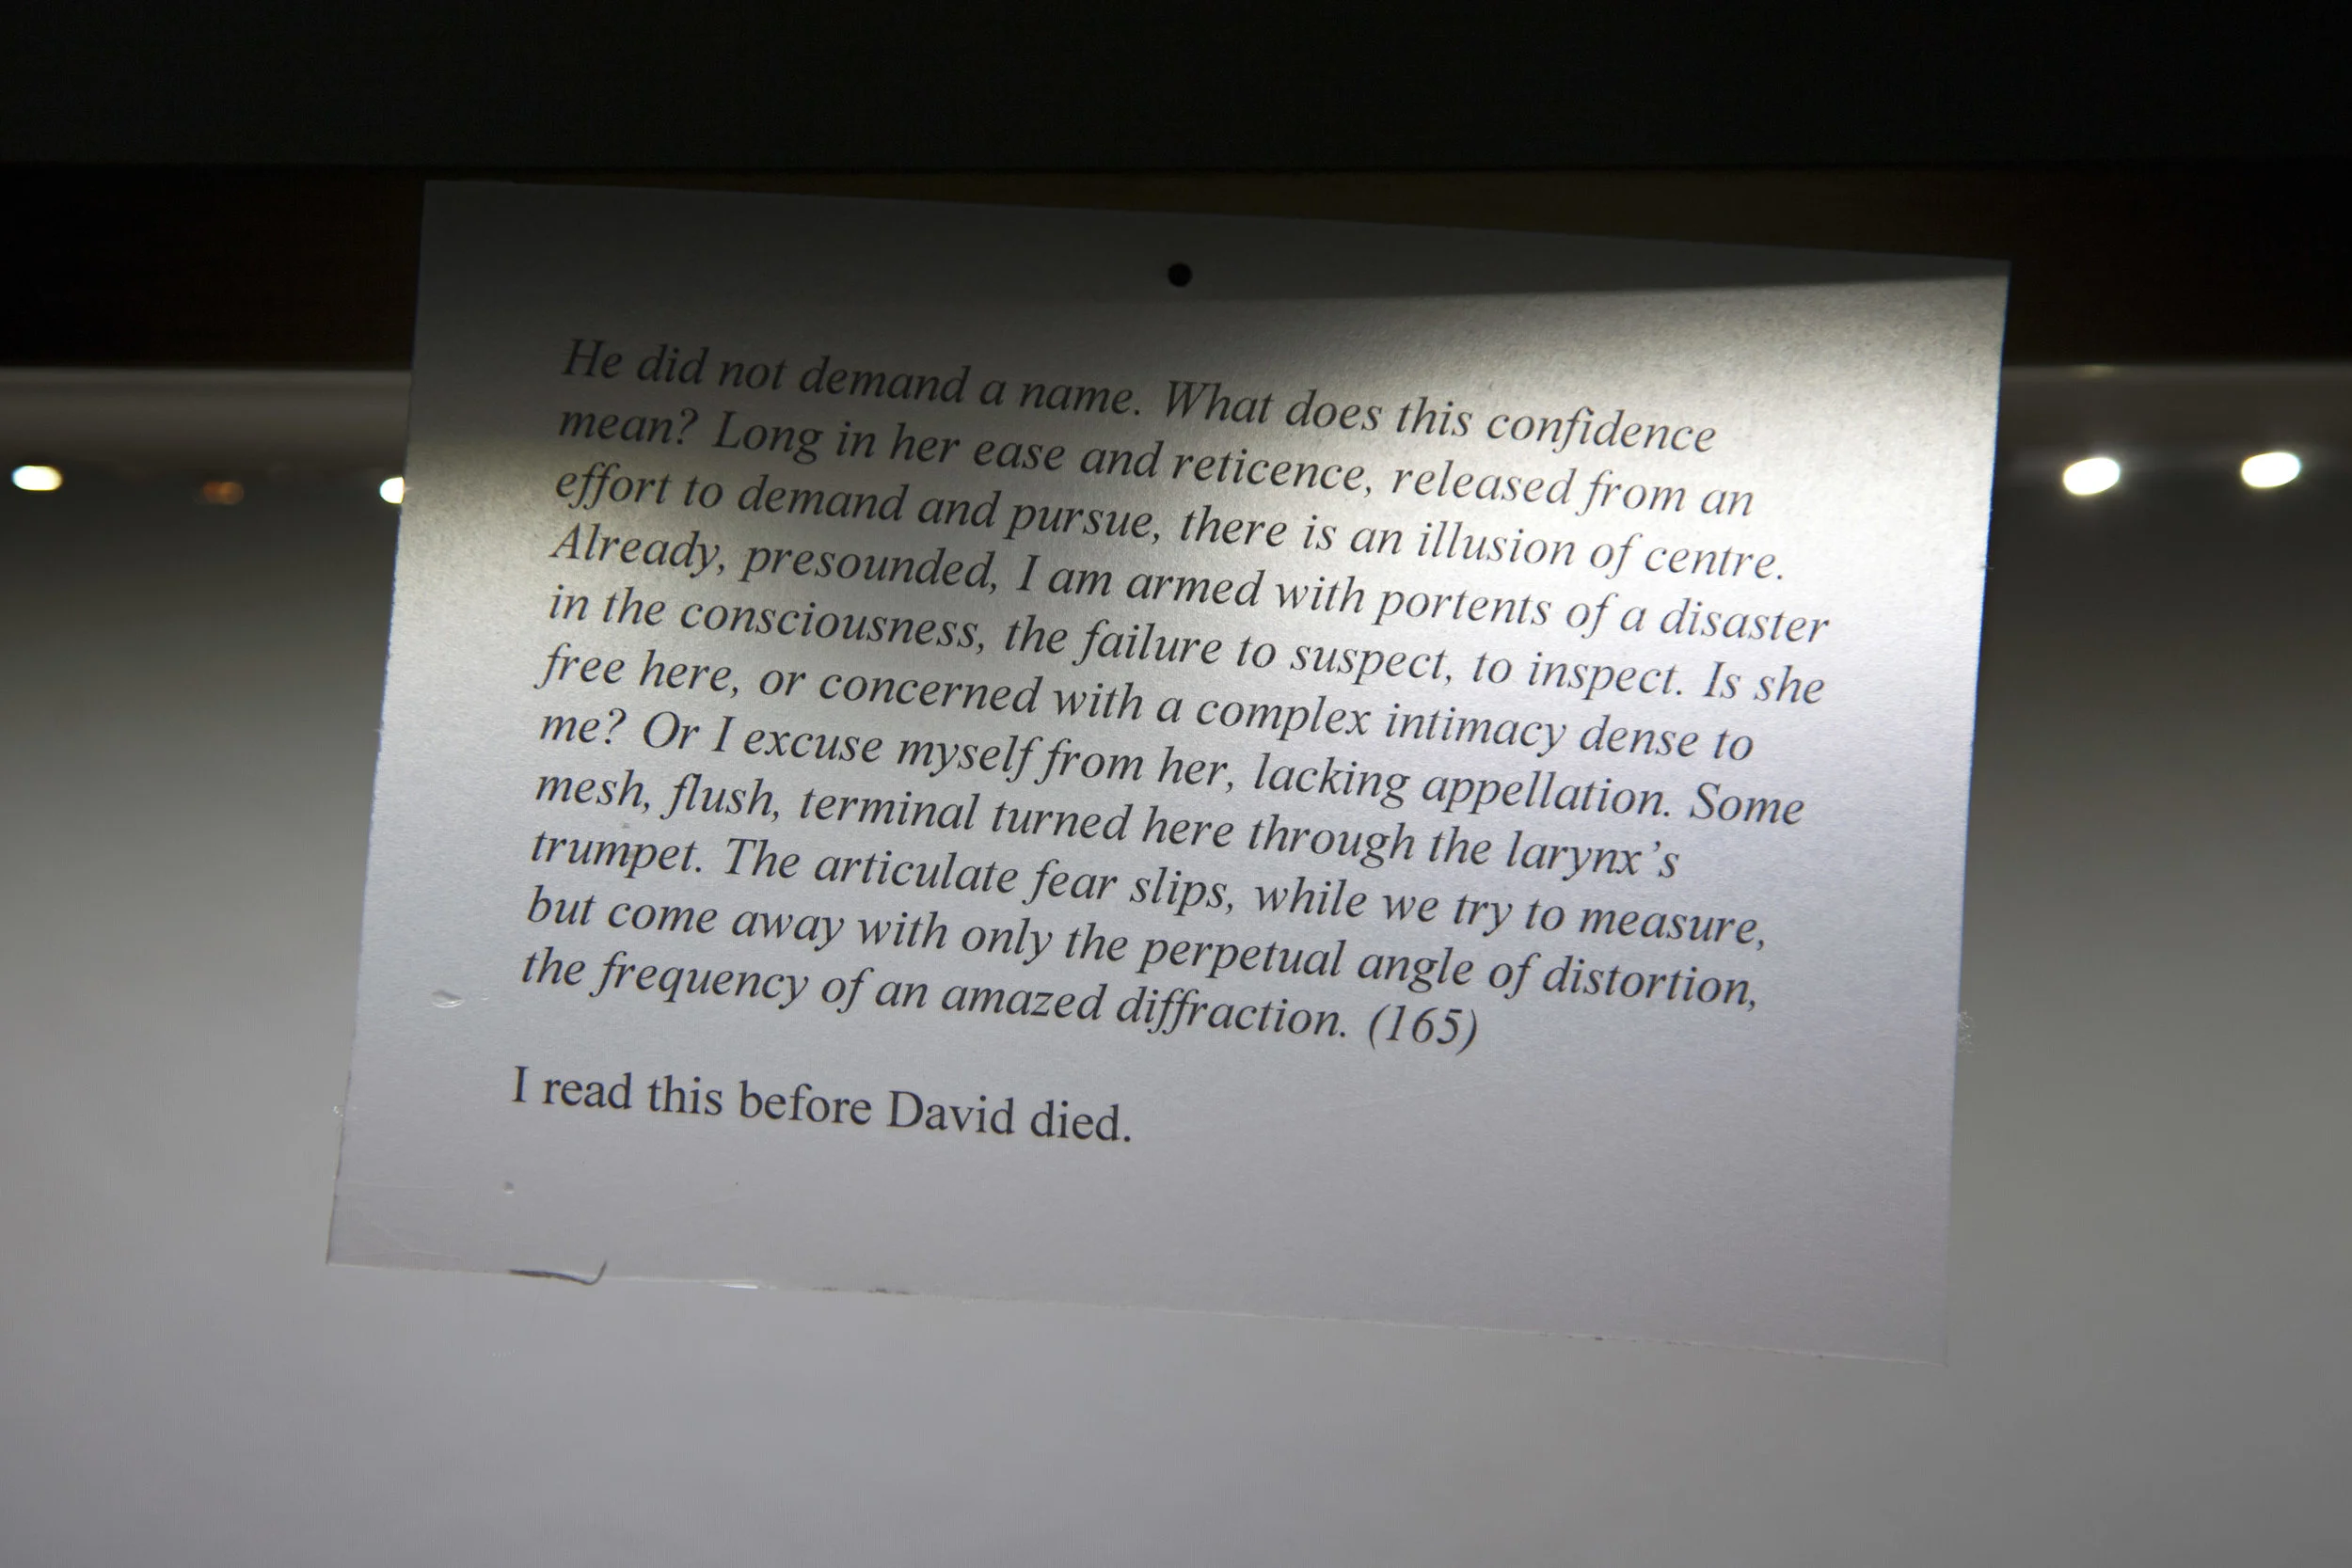 He did not demand a name. What does this confidence
mean? Long in her ease and reticence, released from an
effort to demand and pursue, there is an illusion of centre.
Already, presounded, I am armed with portents of a disaster
in the consciousness, the failure to suspect, to inspect. Is she
free here, or concerned with a complex intimacy dense to
me? Or I excuse myself from her, lacking appellation. Some
mesh, flush, terminal turned here through the larynx's
trumpet. The articulate fear slips, while we try to measure,
but come away with only the perpetual angle of distortion,
the frequency of an amazed diffraction. (165)
I read this before David died.